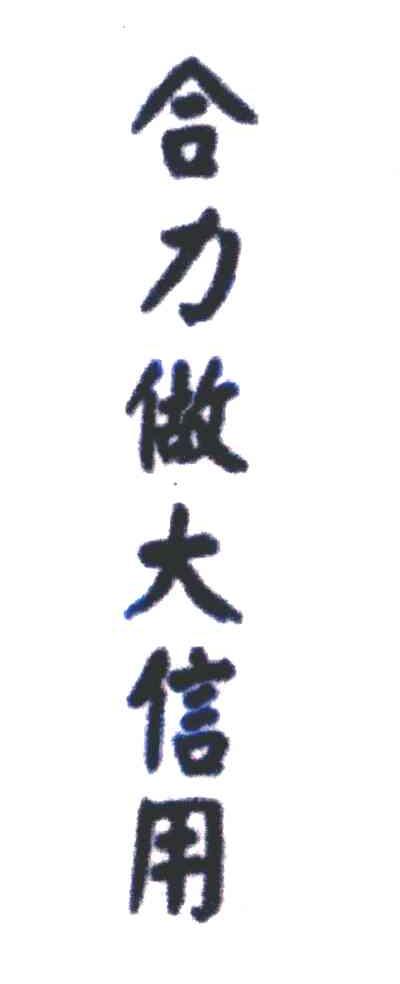 合力做大信用